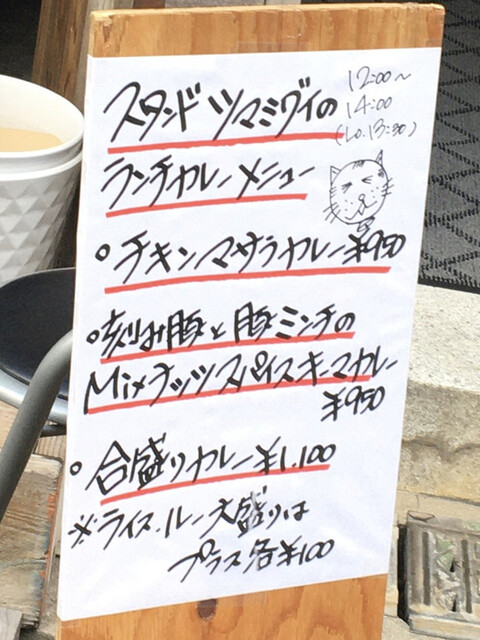 スタンドツマミグイの
12:00〜
14:00
(LO.13:30)
ランチカレーメニュー
・チキンマサラカレー¥950
・刻み豚と豚ミンチの
Mixナッツスパイスキーマカレー
¥950
・合盛りカレー¥1,100
※ライス.ルー大盛りは
プラス各¥100